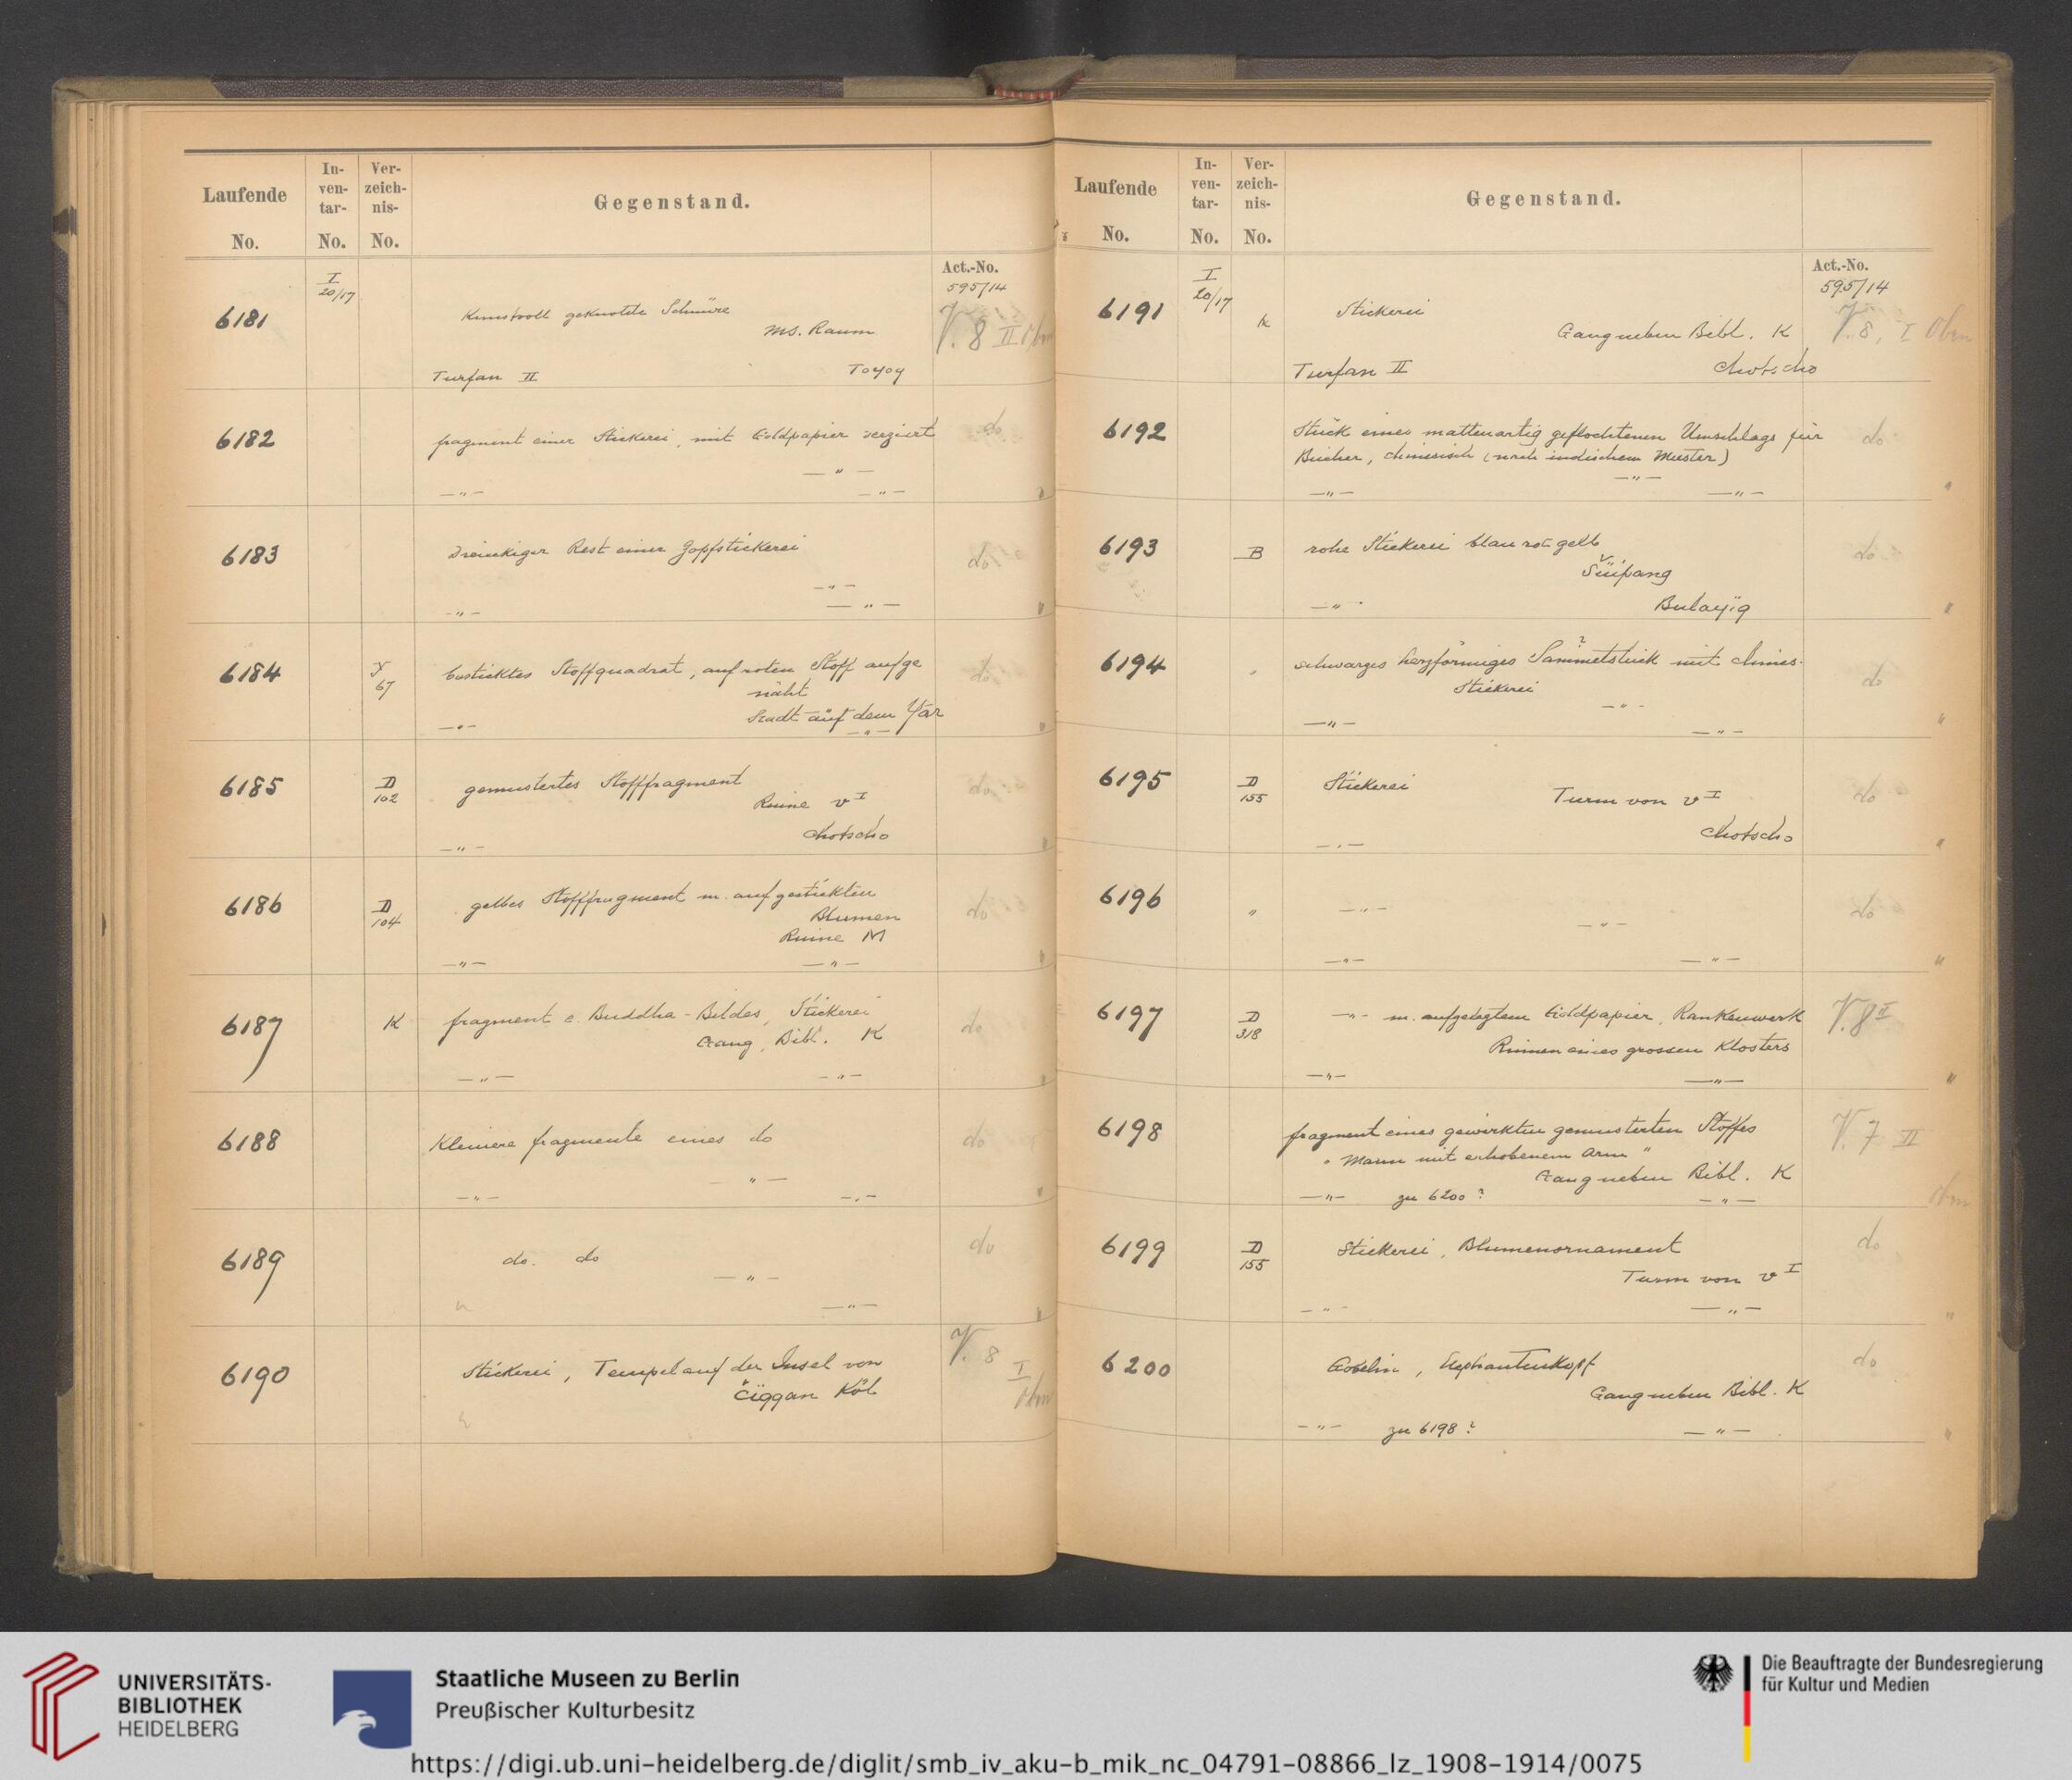 Laufende No.
In-ven-tar-No.
Ver-zeich-nis-No.
Gegenstand.
Act.-No.
595/14
6181
I
20/17
Kunstvoll geknotete Schnüre
Ms. Raum
V. 8 II
Turfan II
Toyoq
6182
fragment einer Stickerei, mit Goldpapier verziert
do
— " —
— " —
— " —
6183
Dreieckiger Rest einer Zopfstickerei
do
— " —
— " —
— " —
6184
Y
67
besticktes Stoffquadrat, auf roten Stoff aufge
näht
do
Stadt auf dem Yar
— " —
— " —
6185
D
102
gemustertes Stofffragment
do
Ruine v I
Chotscho
— " —
6186
D
104
gelbes Stofffragment m. aufgestickten
Blumen
do
Ruine M
— " —
— " —
6187
K
fragment e. Buddha-Bildes, Stickerei
do
Gang, Bibl. K
— " —
— " —
6188
Kleinere fragmente eines do
do
— " —
— " —
— " —
6189
do. do
do
— " —
— " —
6190
Stickerei, Tempel auf der Insel von
Čïggan Köl
V. 8 I
Laufende No.
In-ven-tar-No.
Ver-zeich-nis-No.
Gegenstand.
Act.-No.
595/14
6191
I
20/17
K
Stickerei
Gang neben Bibl. K
V. 8, I Obm
Turfan II
Chotscho
6192
Stück eines mattenartig geflochtenen Umschlags für
Bücher, chinesisch (nach indischem Muster)
do
— " —
— " —
— " —
6193
B
rohe Stickerei blau rot gelb
do
Šüïpang
— " —
Bulayïq
6194
"
schwarzes herzförmiges Sammetstück mit chines.
?
Stickerei
do
— " —
— " —
— " —
6195
D
155
Stickerei
do
Turm von v I
Chotscho
— " —
6196
"
— " —
do
— " —
— " —
— " —
6197
D
318
— " — m. aufgelegtem Goldpapier, Rankenwerk
V. 8 II
Ruinen eines grossen Klosters
— " —
— " —
6198
fragment eines gewirkten gemusterten Stoffes
"Mann mit erhobenem Arm"
V. 7 II
Gang neben Bibl. K
— " — zu 6200?
— " —
6199
D
155
Stickerei, Blumenornament
do
Turm von v I
— " —
— " —
6200
Gobelin, Elephantenkopf
do
Gang neben Bibl. K
— " — zu 6198?
— " —
UNIVERSITÄTS-
BIBLIOTHEK
HEIDELBERG
Staatliche Museen zu Berlin
Preußischer Kulturbesitz
Die Beauftragte der Bundesregierung
für Kultur und Medien
https://digi.ub.uni-heidelberg.de/diglit/smb_iv_aku-b_mik_nc_04791-08866_lz_1908-1914/0075